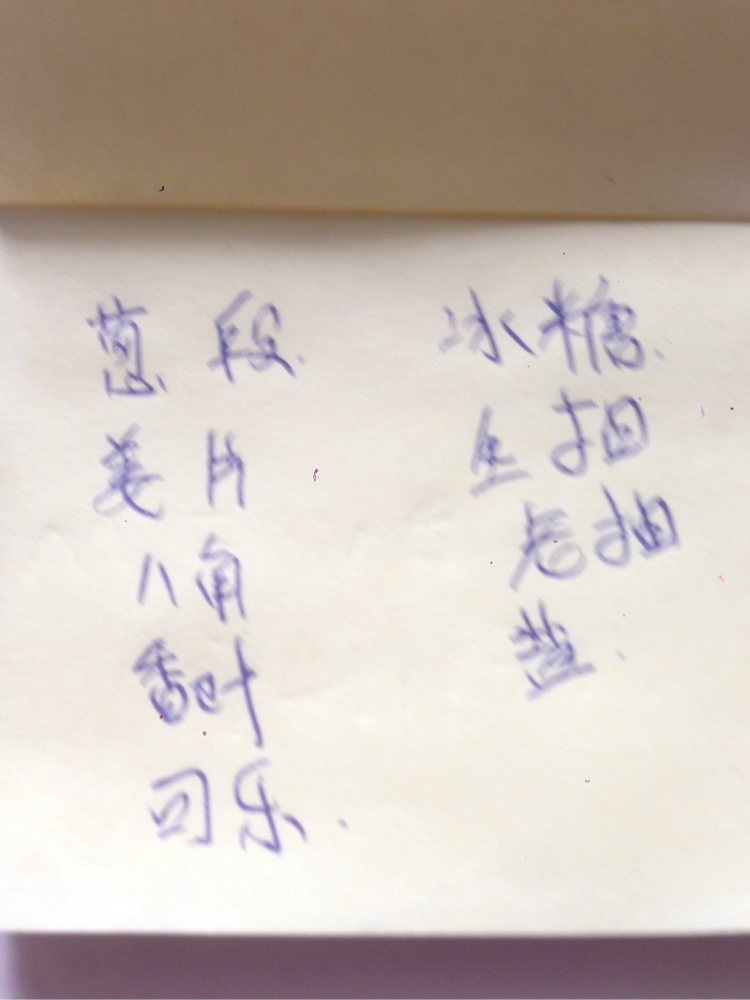 葱段
姜片
八角
香叶
可乐.
冰糖.
生抽
老抽
盐.